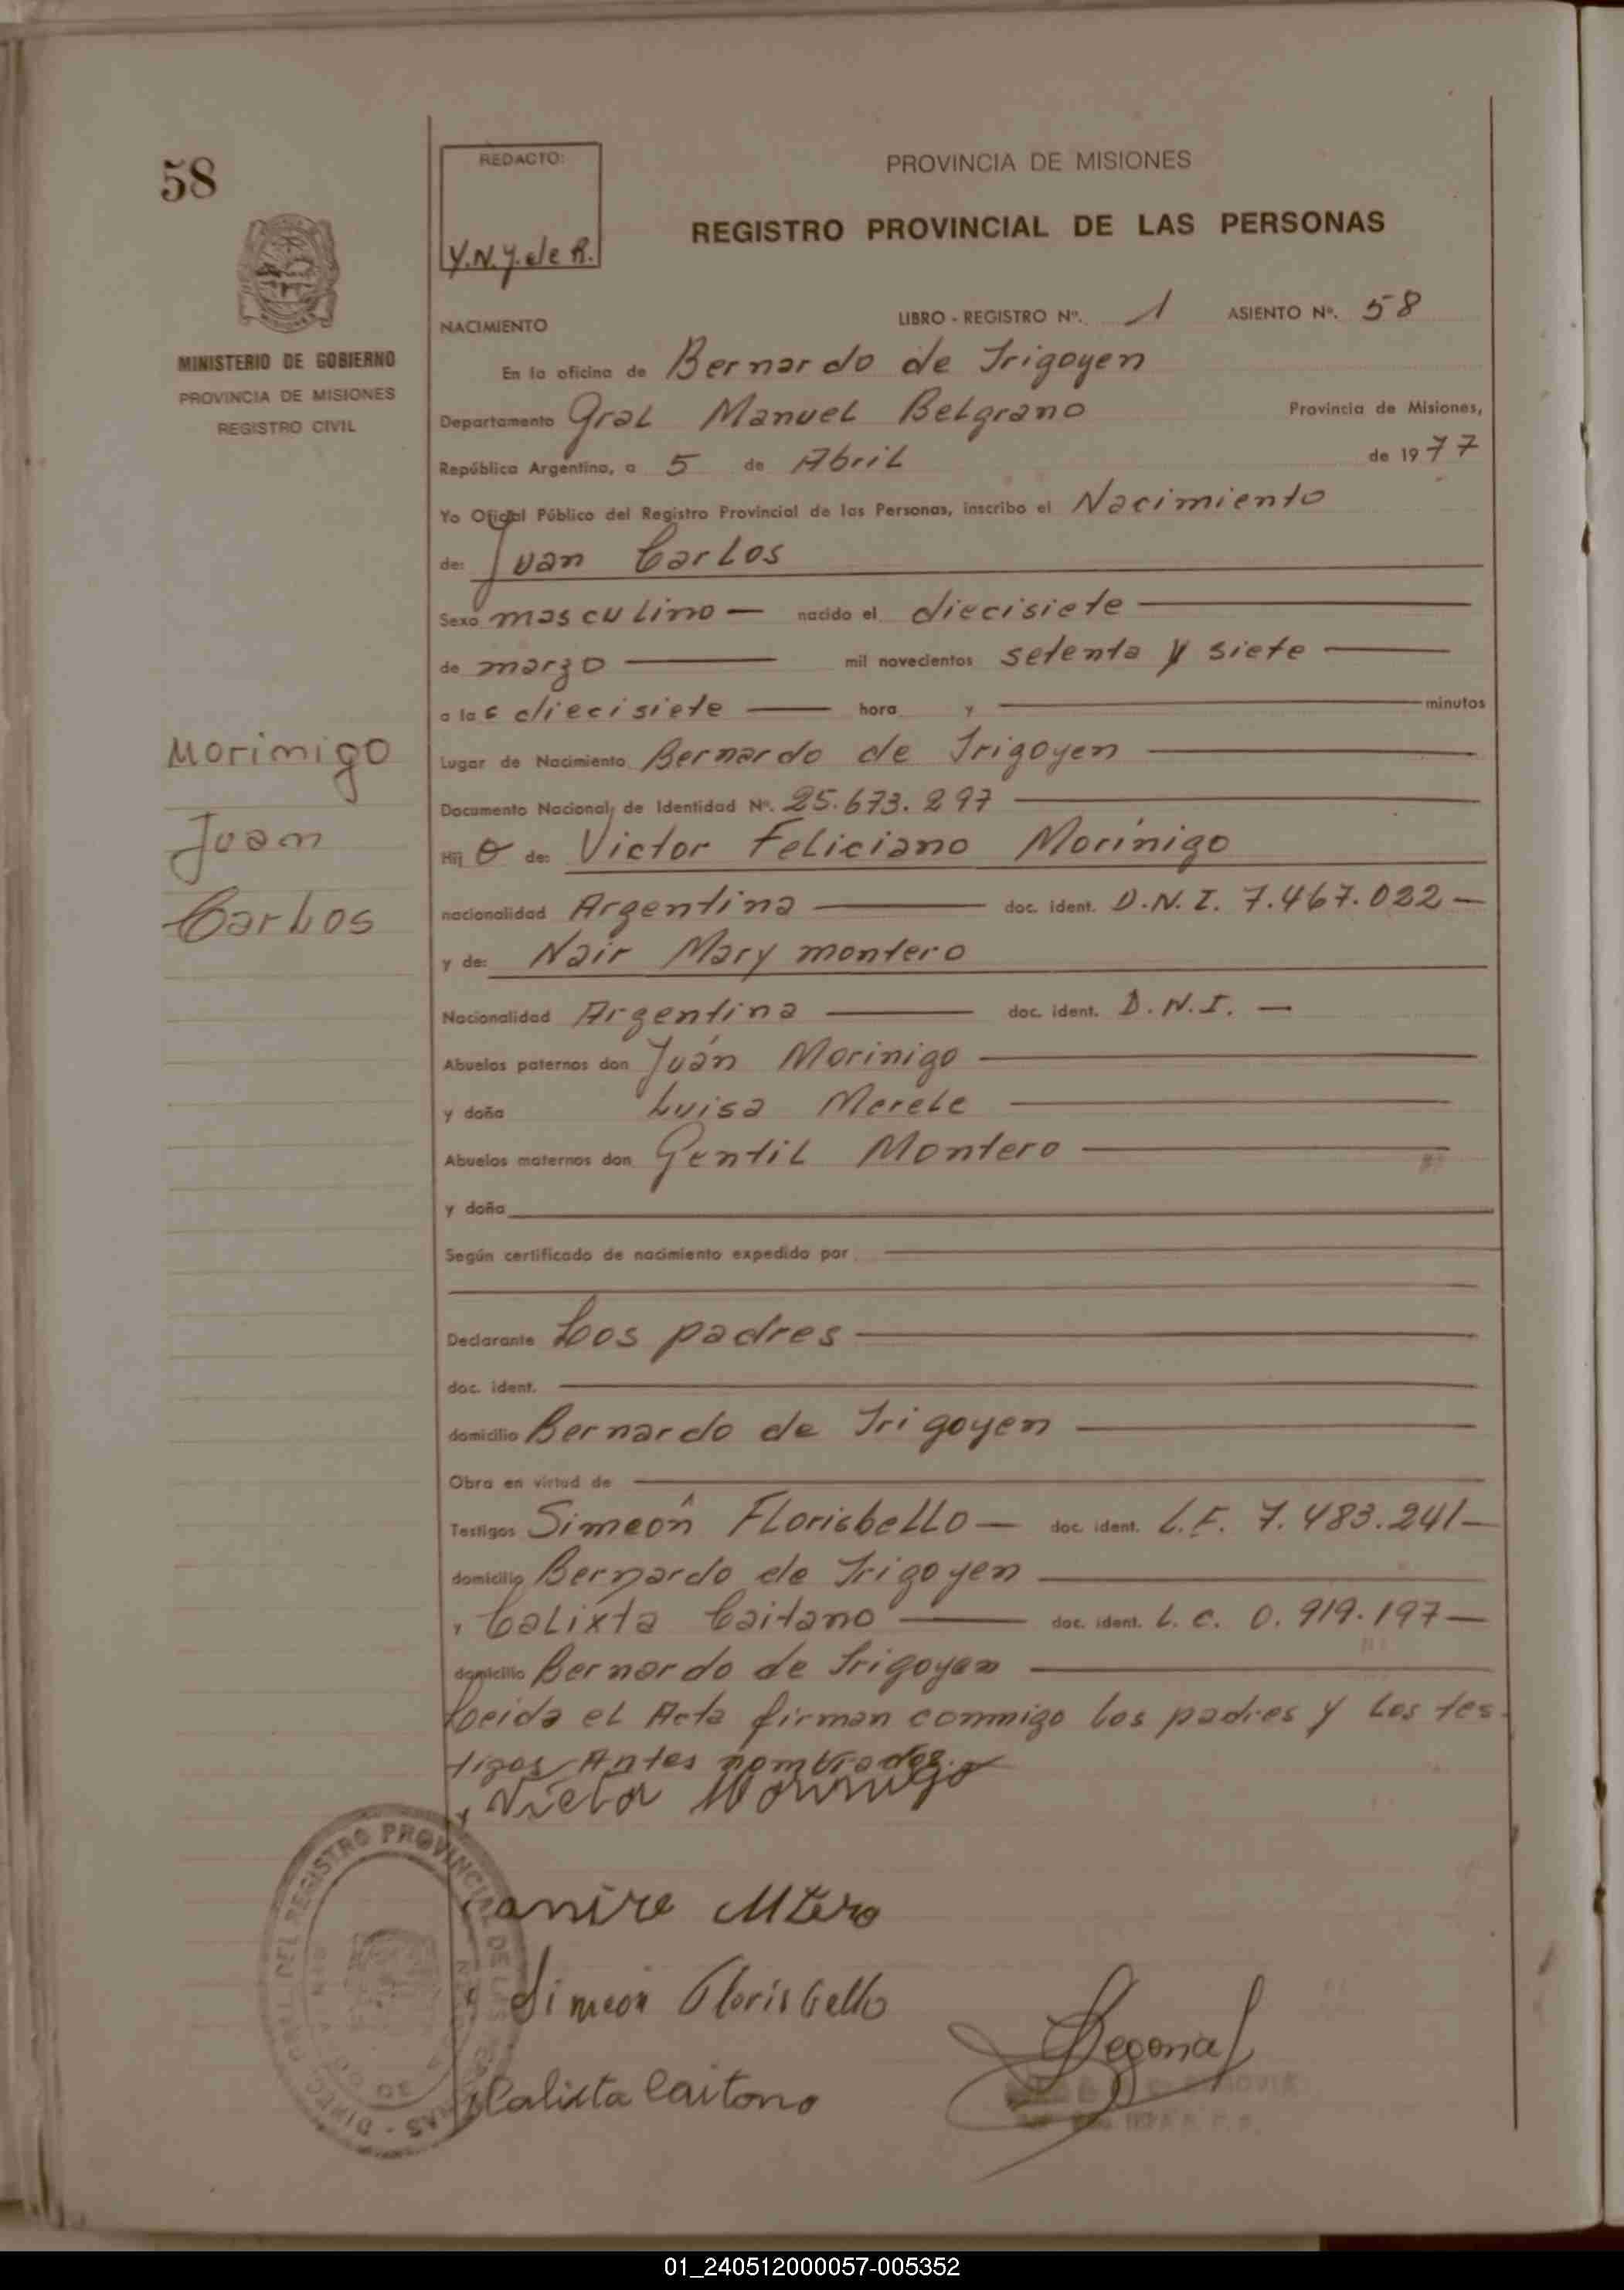 58
REDACTO:
Y.N.Y. de R.
PROVINCIA DE MISIONES
REGISTRO PROVINCIAL DE LAS PERSONAS
MINISTERIO DE GOBIERNO
PROVINCIA DE MISIONES
REGISTRO CIVIL
NACIMIENTO LIBRO - REGISTRO Nº. 1 ASIENTO Nº. 58
En la oficina de Bernardo de Irigoyen
Departamento Gral Manuel Belgrano Provincia de Misiones,
República Argentina, a 5 de Abril de 1977
Yo Oficial Público del Registro Provincial de las Personas, inscribo el Nacimiento
de: Juan Carlos
Sexo masculino — nacido el diecisiete —
de marzo — mil novecientos setenta y siete —
a las diecisiete — hora y — minutos
Morinigo
Juan
Carlos
Lugar de Nacimiento Bernardo de Irigoyen —
Documento Nacional de Identidad Nº. 25.673.297 —
Hij o de: Victor Feliciano Morinigo
nacionalidad Argentina — doc. ident. D.N.I. 7.467.022 —
y de: Nair Mary montero
Nacionalidad Argentina — doc. ident. D.N.I. —
Abuelos paternos don Juán Morinigo —
y doña Luisa Merele —
Abuelos maternos don Gentil Montero —
y doña —
Según certificado de nacimiento expedido por —
Declarante Los padres —
doc. ident. —
domicilio Bernardo de Irigoyen —
Obra en virtud de —
Testigos Simeón Florisbello — doc. ident. L.E. 7.483.241 —
domicilio Bernardo de Irigoyen —
y Calixta Caitano — doc. ident. L.C. 0.919.197 —
domicilio Bernardo de Irigoyen —
Leida el Acta firman conmigo los padres y los tes-
tigos Antes nombrados.
Victor Morinigo
Simeon Florisbello
Calixta Caitano
DIRECC. GRAL. DEL REGISTRO PROVINCIAL DE LAS PERSONAS
01_240512000057-005352